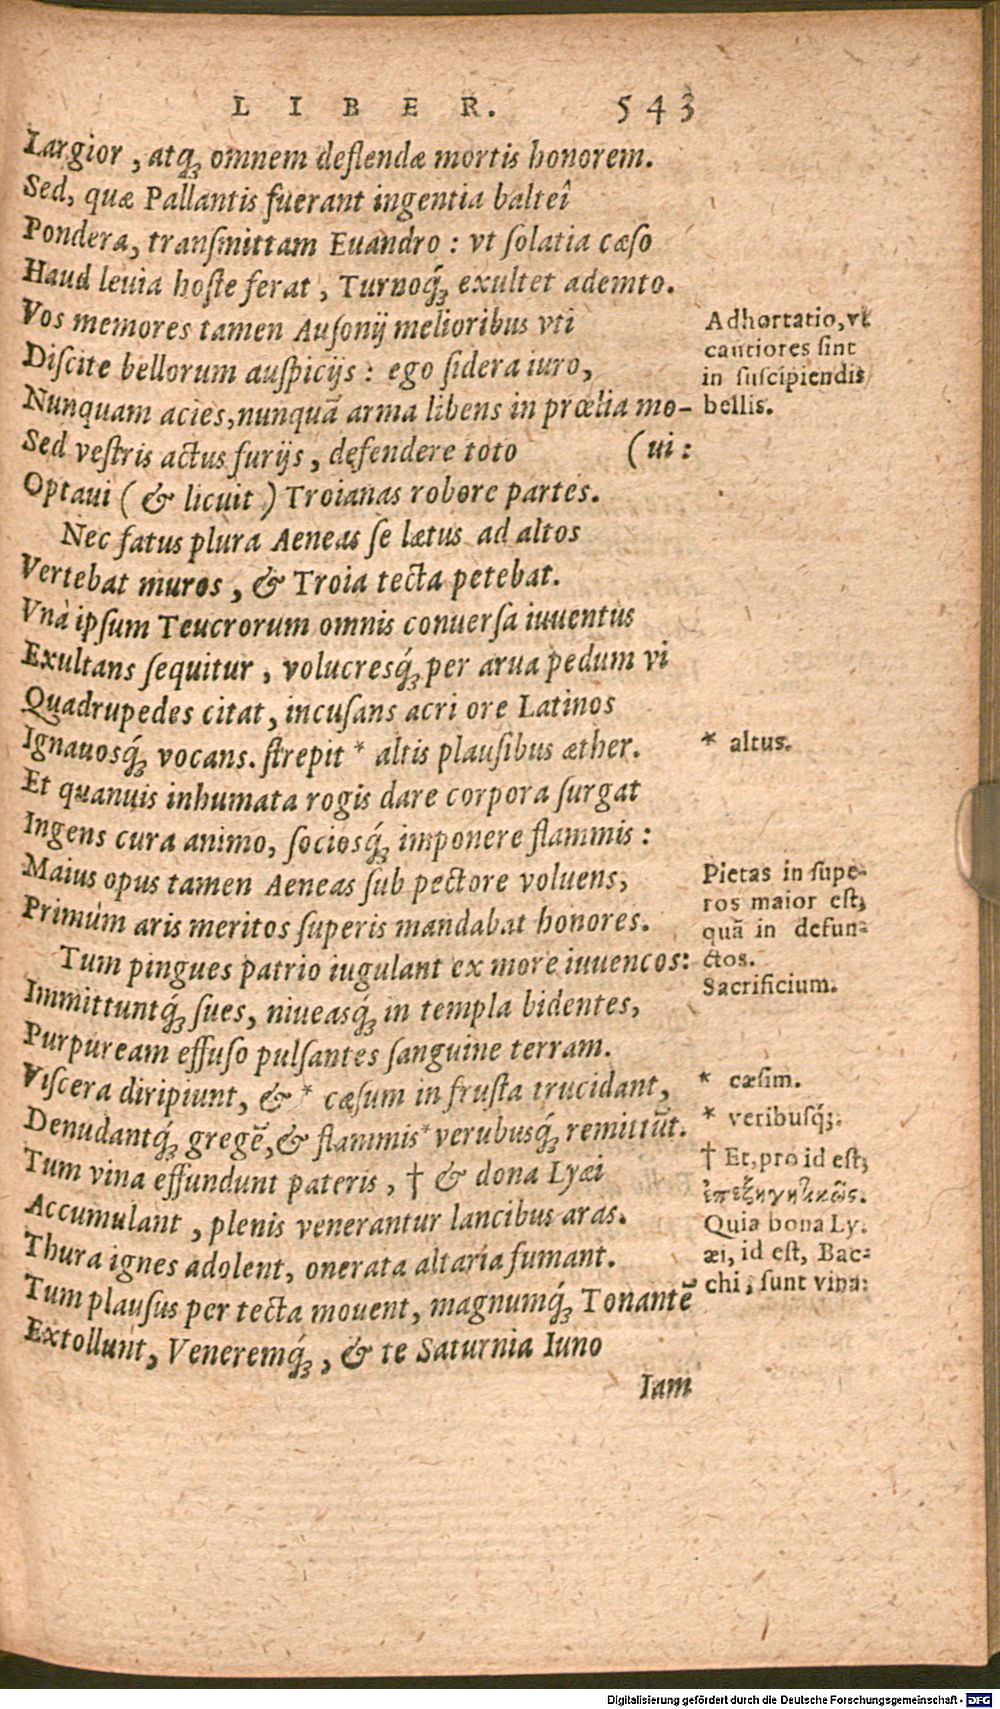 LIBER. 543
Largior, atq́; omnem deflendæ mortis honorem.
Sed, quæ Pallantis fuerant ingentia balteî
Pondera, transmittam Euandro: vt solatia cæso
Haud leuia hoste ferat, Turnoq́; exultet ademto.
Vos memores tamen Ausonij melioribus vti
Discite bellorum auspicijs: ego sidera iuro,
Nunquam acies, nunquā arma libens in prœlia mo-
Sed vestris actus furijs, defendere toto (ui:
Optaui (& licuit) Troianas robore partes.
Nec fatus plura Aeneas se lætus ad altos
Vertebat muros, & Troia tecta petebat.
Vnà ipsum Teucrorum omnis conuersa iuuentus
Exultans sequitur, volucresq́; per arua pedum vi
Quadrupedes citat, incusans acri ore Latinos
Ignauosq́; vocans. strepit * altis plausibus æther.
Et quanuis inhumata rogis dare corpora surgat
Ingens cura animo, sociosq́; imponere flammis:
Maius opus tamen Aeneas sub pectore voluens,
Primùm aris meritos superis mandabat honores.
Tum pingues patrio iugulant ex more iuuencos:
Immittuntq́; sues, niueasq́; in templa bidentes,
Purpuream effuso pulsantes sanguine terram.
Viscera diripiunt, & * cæsum in frusta trucidant,
Denudantq́; gregē, & flammis * verubusq́; remittūt.
Tum vina effundunt pateris, † & dona Lyæi
Accumulant, plenis venerantur lancibus aras.
Thura ignes adolent, onerata altaria fumant.
Tum plausus per tecta mouent, magnumq́; Tonantē
Extollunt, Veneremq́;, & te Saturnia Iuno
Iam
Adhortatio, vt
cautiores sint
in suscipiendis
bellis.
* altus.
Pietas in supe-
ros maior est,
quā in defun-
ctos.
Sacrificium.
* cæsim.
* veribusq́;.
† Et, pro id est,
ἐπεξηγητικῶς.
Quia bona Ly-
æi, id est, Bac-
chi, sunt vina.
Digitalisierung gefördert durch die Deutsche Forschungsgemeinschaft - DFG